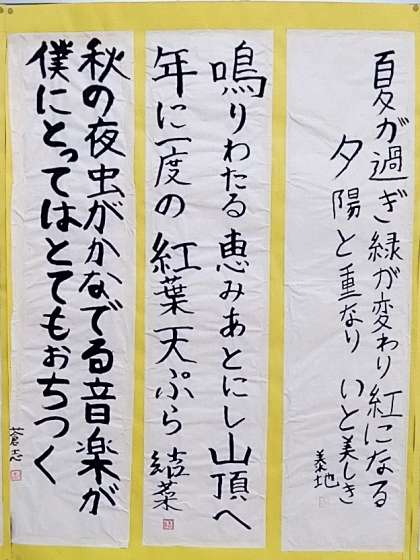 夏が過ぎ緑が変わり紅になる
夕陽と重なり いと美しき
泰地
鳴りわたる恵みあとにし山頂へ
年に一度の紅葉天ぷら 結菜
秋の夜虫がかなでる音楽が
僕にとってはとてもおちつく
蒼志